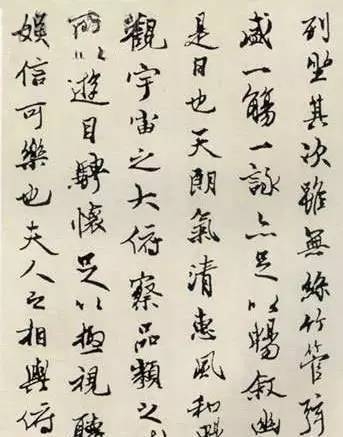 列坐其次雖無絲竹管弦
盛一觴一詠亦足以暢敘幽
是日也天朗氣清惠風和暢
觀宇宙之大俯察品類之盛
所以遊目騁懷足以極視聽
娛信可樂也夫人之相與俯